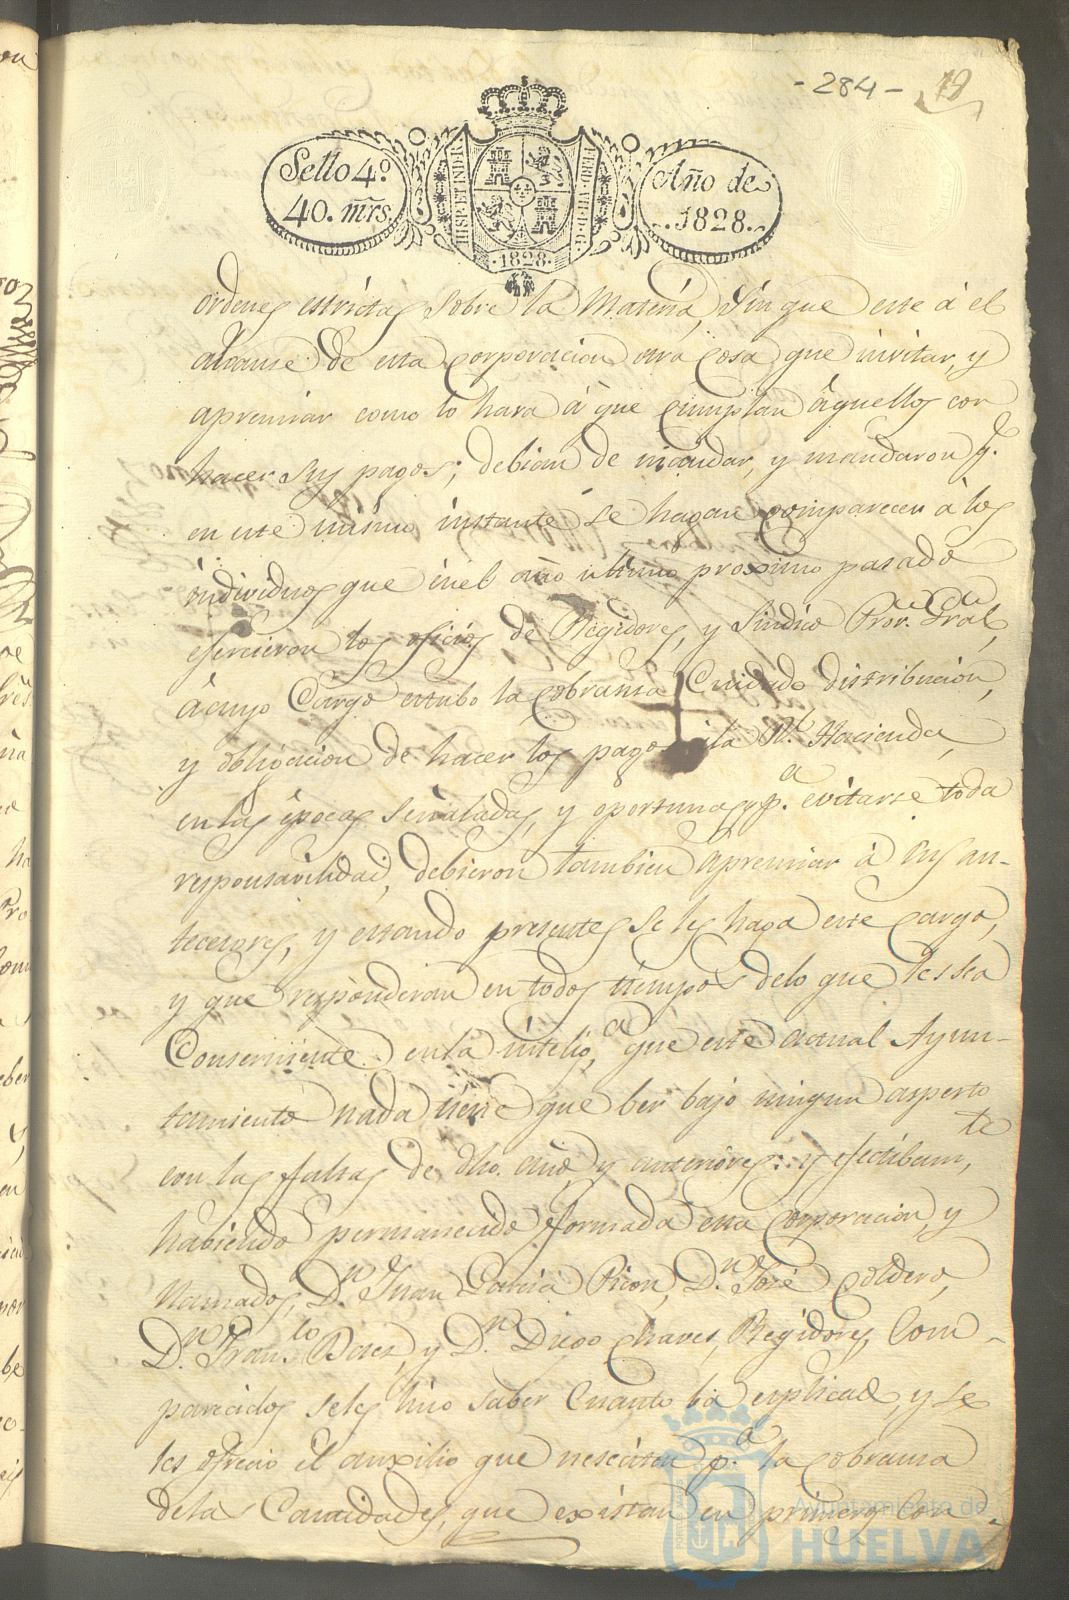 - 284 - 19
Sello 4º
40. mrs.
HISP. ET IND. R
FERD. VII. D. G.
Año de
1828.
·1828·
ordenes estrictas sobre la Materia, sin que este á el
alcanse de esta Corporacion otra Cosa que invitar, y
apremiar como lo hara á que Cumplan aquellos con
hacer sus pagos; debian de mandar, y mandaron q.e
en este mismo instante se hagan comparecer á los
individuos que en el año ultimo proximo pasado
ejercieron los oficios de Regidores, y Sindico Pror. Gral,
á cuyo Cargo estubo la Cobransa Cuidado distribucion,
y obligacion de hacer los pagos á la Rl. Hacienda,
en las épocas señaladas, y oportunas, y p.a evitarse toda
responsavilidad, debieron tambien apremiar á sus an-
tecesores, y estando presentes se les haga este Cargo,
y que responderan en todos tiempos delo que les sea
Conserniente en la intelig.a que este actual Ayun-
tamiento nada tiene que ber bajo ningun asperto
con las faltas de dho. año y anteriores: y efectibam.te
habiendo permanecido formada esta Corporacion, y
llamados, D.n Juan Garcia Picon, D.n José Coldero,
D.n Fran.co Baes, y D.n Diego Chaves, Regidores Com-
parecidos seles hiso saber Cuanto ba esplicado, y se
les ofrecio el auxilio que nesesiten p.a la Cobransa
de las Cantidades, que existan en primeros Con-
Ayuntamiento de
HUELVA